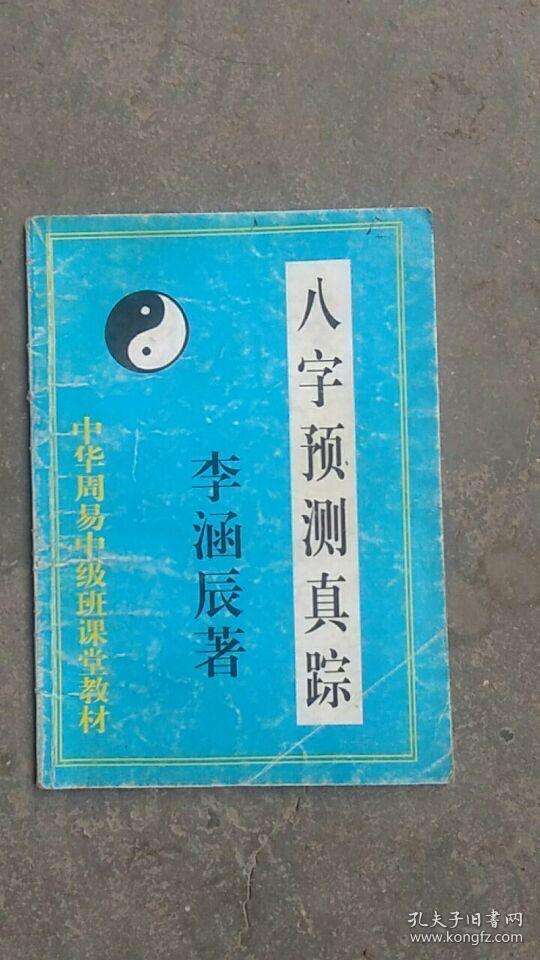 八字预测真踪
李涵辰著
中华周易中级班课堂教材
孔夫子旧书网
www.kongfz.com